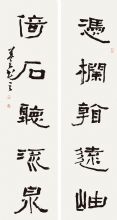 憑欄遠岫
倚石聽流泉